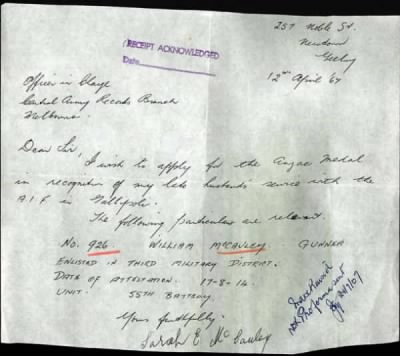 257 Noble St.
Newtown
Geelong
12th April '67
RECEIPT ACKNOWLEDGED
Date
Officer in Charge
Central Army Records Branch
Melbourne
Dear Sir,
I wish to apply for the Anzac Medal
in recognition of my late husband's service with the
A.I.F in Gallipoli.
The following particulars are relevant.
No. 926. WILLIAM McCAULEY GUNNER
ENLISTED IN THIRD MILITARY DISTRICT.
DATE OF ATTESTATION. 17-8-14.
UNIT. 55TH BATTERY.
Yours faithfully,
Sarah E. McCauley